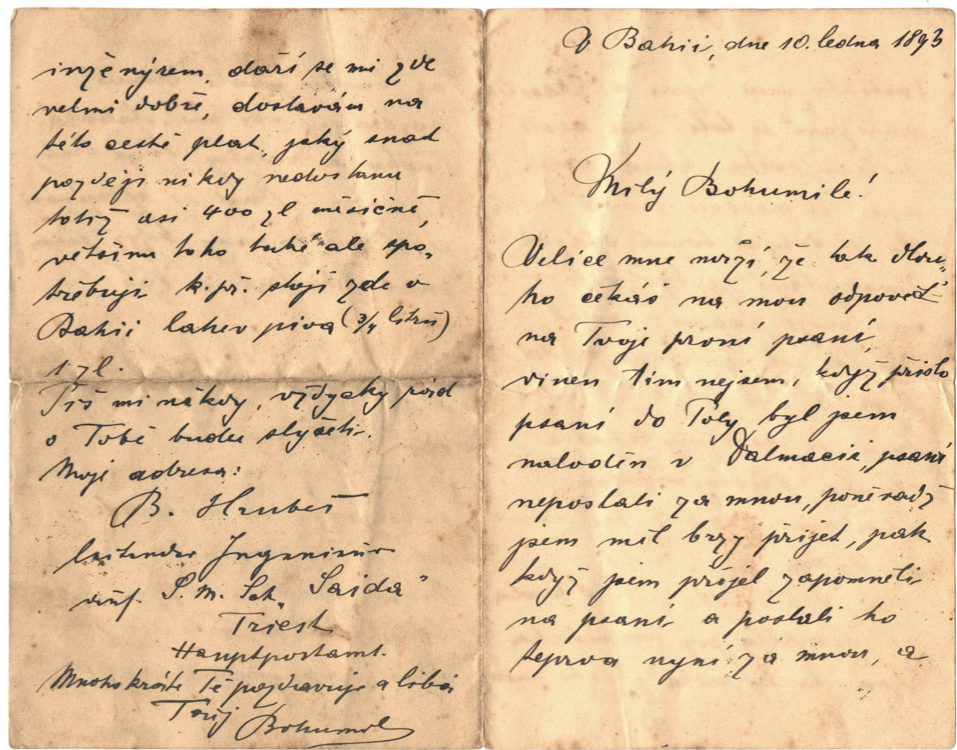 V Bahii, dne 10. ledna 1893
Milý Bohumile!
Velice mne mrzí, že tak dlou„
ho čekáš na mou odpověď
na Tvoje první psaní,
vinen tím nejsem, když přišlo
psaní do Poly byl jsem
naloděn v Dalmacii, psaní
neposlali za mnou, poněvadž
jsem měl brzy přijet, pak
když jsem přijel zapomněli
na psaní a poslali ho
teprva nyní za mnou, a
inženýrem, daří se mi zde
velmi dobře, dostávám na
této cestě plat, jaký snad
později nikdy nedostanu
totiž asi 400 zl měsíčně,
většinu toho také ale spo„
třebuji k. př. stojí zde v
Bahii lahev piva (3/4 litrů)
1 zl.
Piš mi někdy, vždycky rád
o Tobě budu slyšeti.
Moje adresa:
B. Hrubeš
leitender Ingenieur
auf S. M. Sch. „Saida"
Triest
Hauptpostamt.
Mnohokráte Tě pozdravuje a líbá
Tvůj Bohumil